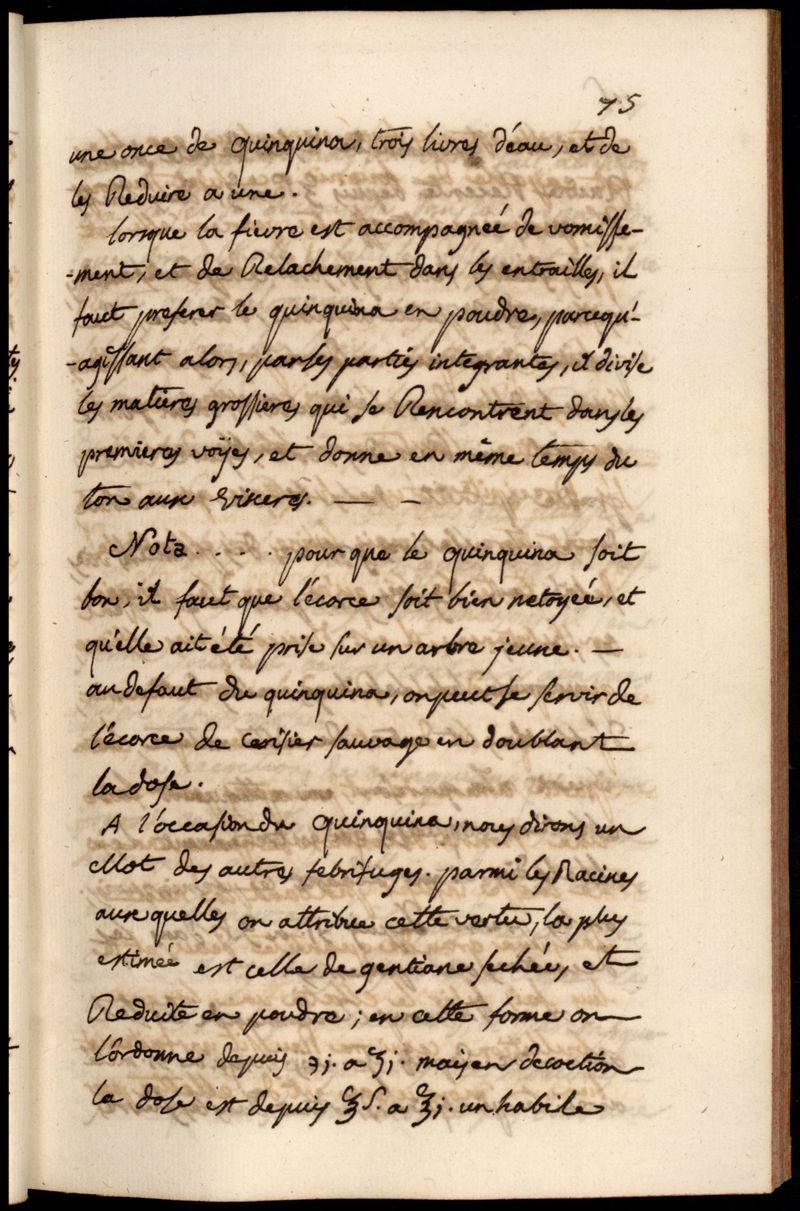 75
une once de quinquina, trois livres d'éau, et de
les Reduire a une.
lorsque la fievre est accompagneé de vomisse-
-ment, et de Relachement dans les entrailles, il
faut preferer le quinquina en poudre, parcequ'-
-agissant alors, par ses partiés integrantes, il divise
les matieres grossieres qui se Rencontrent dans les
premieres voÿes, et donne en même temps du
ton aux visceres. — —
Nota . . . . pour que le quinquina soit
bon, il faut que l'écorce soit bien netoyeé, et
qu'elle ait été prise sur un arbre jeune. —
au defaut du quinquina, on peut se servir de
l'écorce de cerisier sauvage en doublant
la dose.
A l'occasion du quinquina, nous dirons un
Mot des autres febrifuges. parmi les Racines
aux quelles on attribue cette vertu, la plus
estimeé est celle de gentiane sechéé, et
Reduite en poudre; en cette forme on
l'ordonne depuis ʒj. a ℥j. mais en decoction
la dose est depuis ℥s. a ℥j. un habile